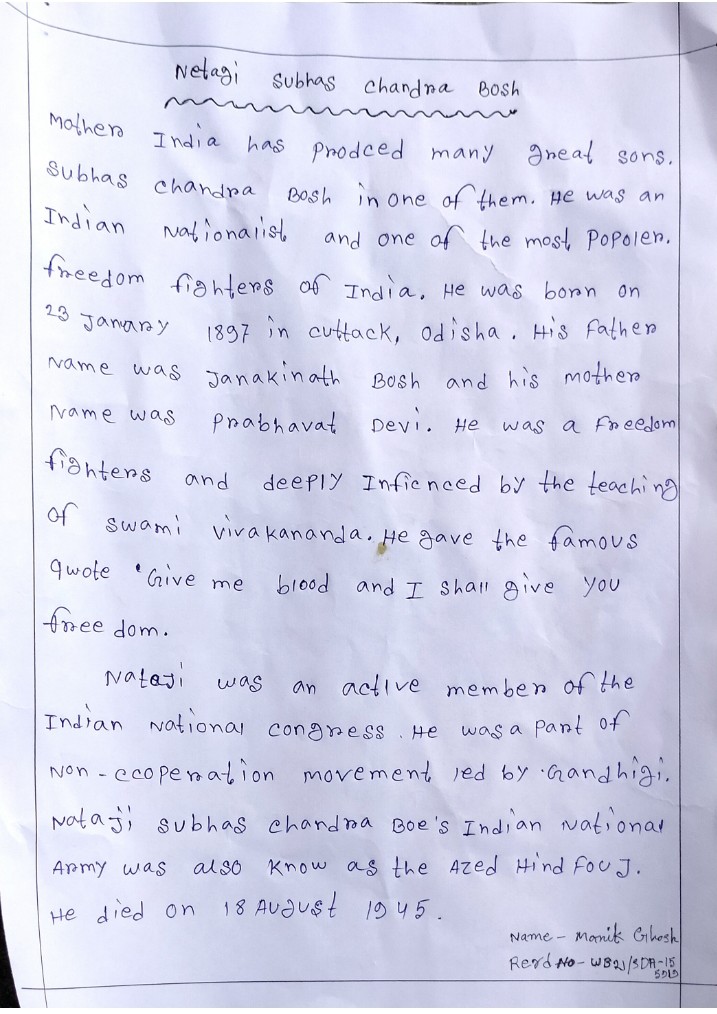 Netagi Subhas Chandra Bosh
Mother India has prodced many great sons.
Subhas Chandra Bosh in one of them. He was an
Indian Nationalist and one of the most Popoler.
freedom fighters of India. He was born on
23 Janary 1897 in cuttack, Odisha. His father
Name was Janakinath Bosh and his mother
Name was Prabhavat Devi. He was a freedom
fighters and deeply Inficnced by the teaching
of swami vivakananda. He gave the famous
quote 'Give me blood and I shall give you
free dom.
Nataji was an active member of the
Indian National congress. He was a part of
Non-ccoperation movement led by Gandhigi.
Nataji Subhas Chandra Boe's Indian National
Army was also Know as the Azed Hind Fouj.
He died on 18 August 1945.
Name - Manik Ghosh
No - WB21/SDA-15